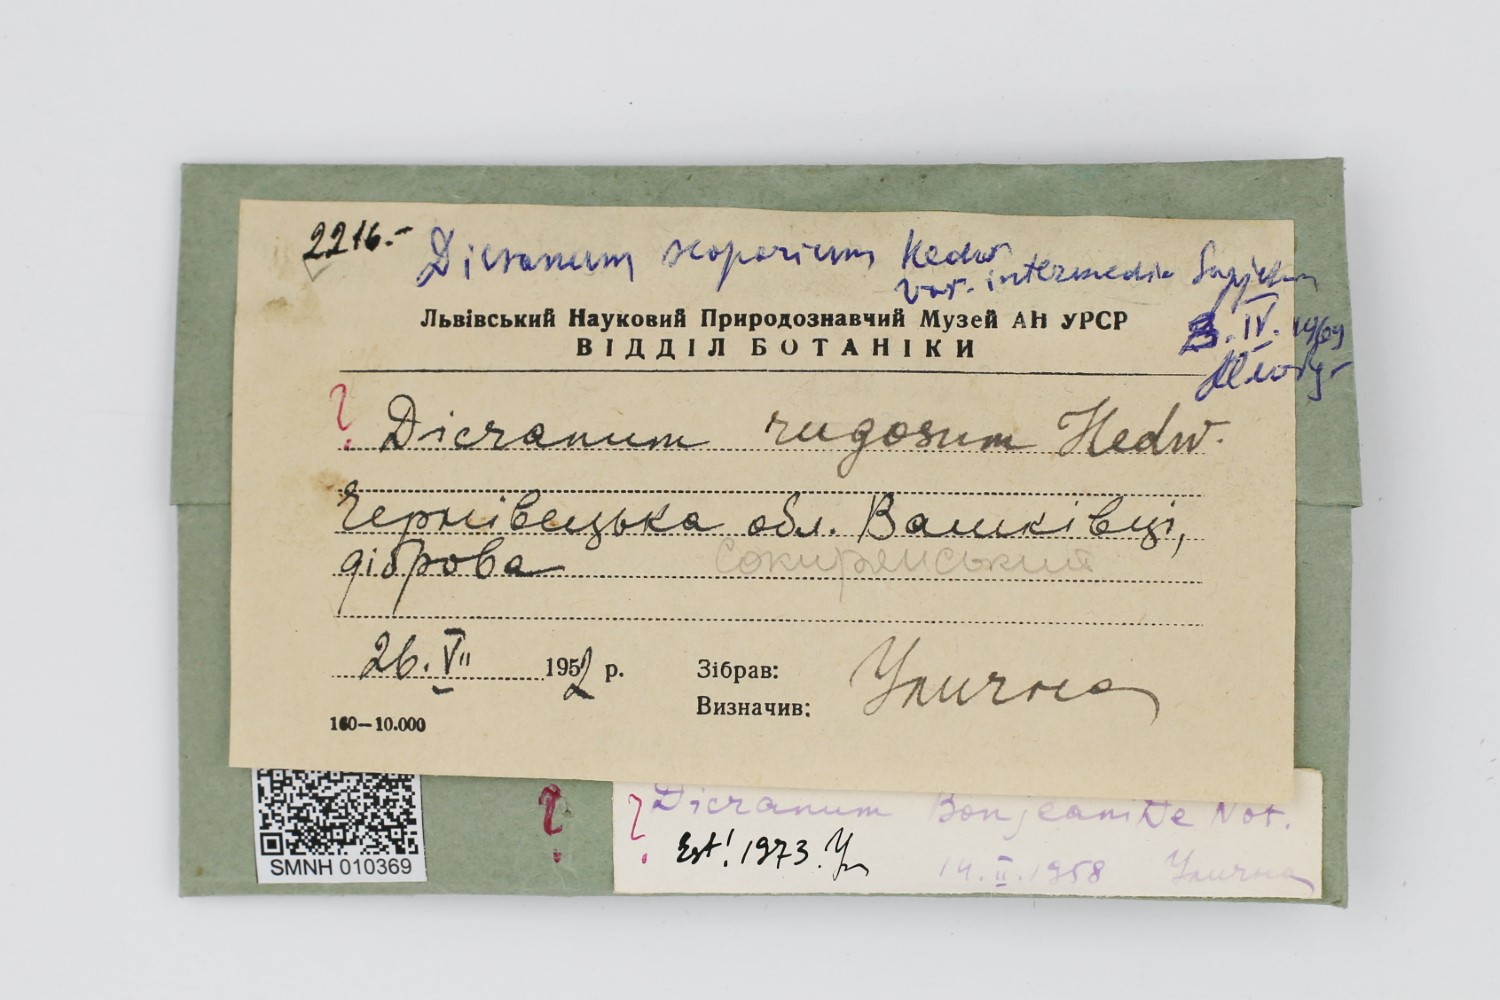 2216.-
Dicranum scoparium Hedw.
var. intermedia
Львівський Науковий Природознавчий Музей АН УРСР
ВІДДІЛ БОТАНІКИ
3.IV.1969
? Dicranum rugosum Hedw.
Чернівецька обл. Вашківці,
діброва Сокирянський
26.VII 1952 р.
Зібрав: Улична
Визначив:
160—10.000
SMNH 010369
?
? Dicranum Bonjeani De Not.
Est! 1973. Ул
14.II.1958 Улична